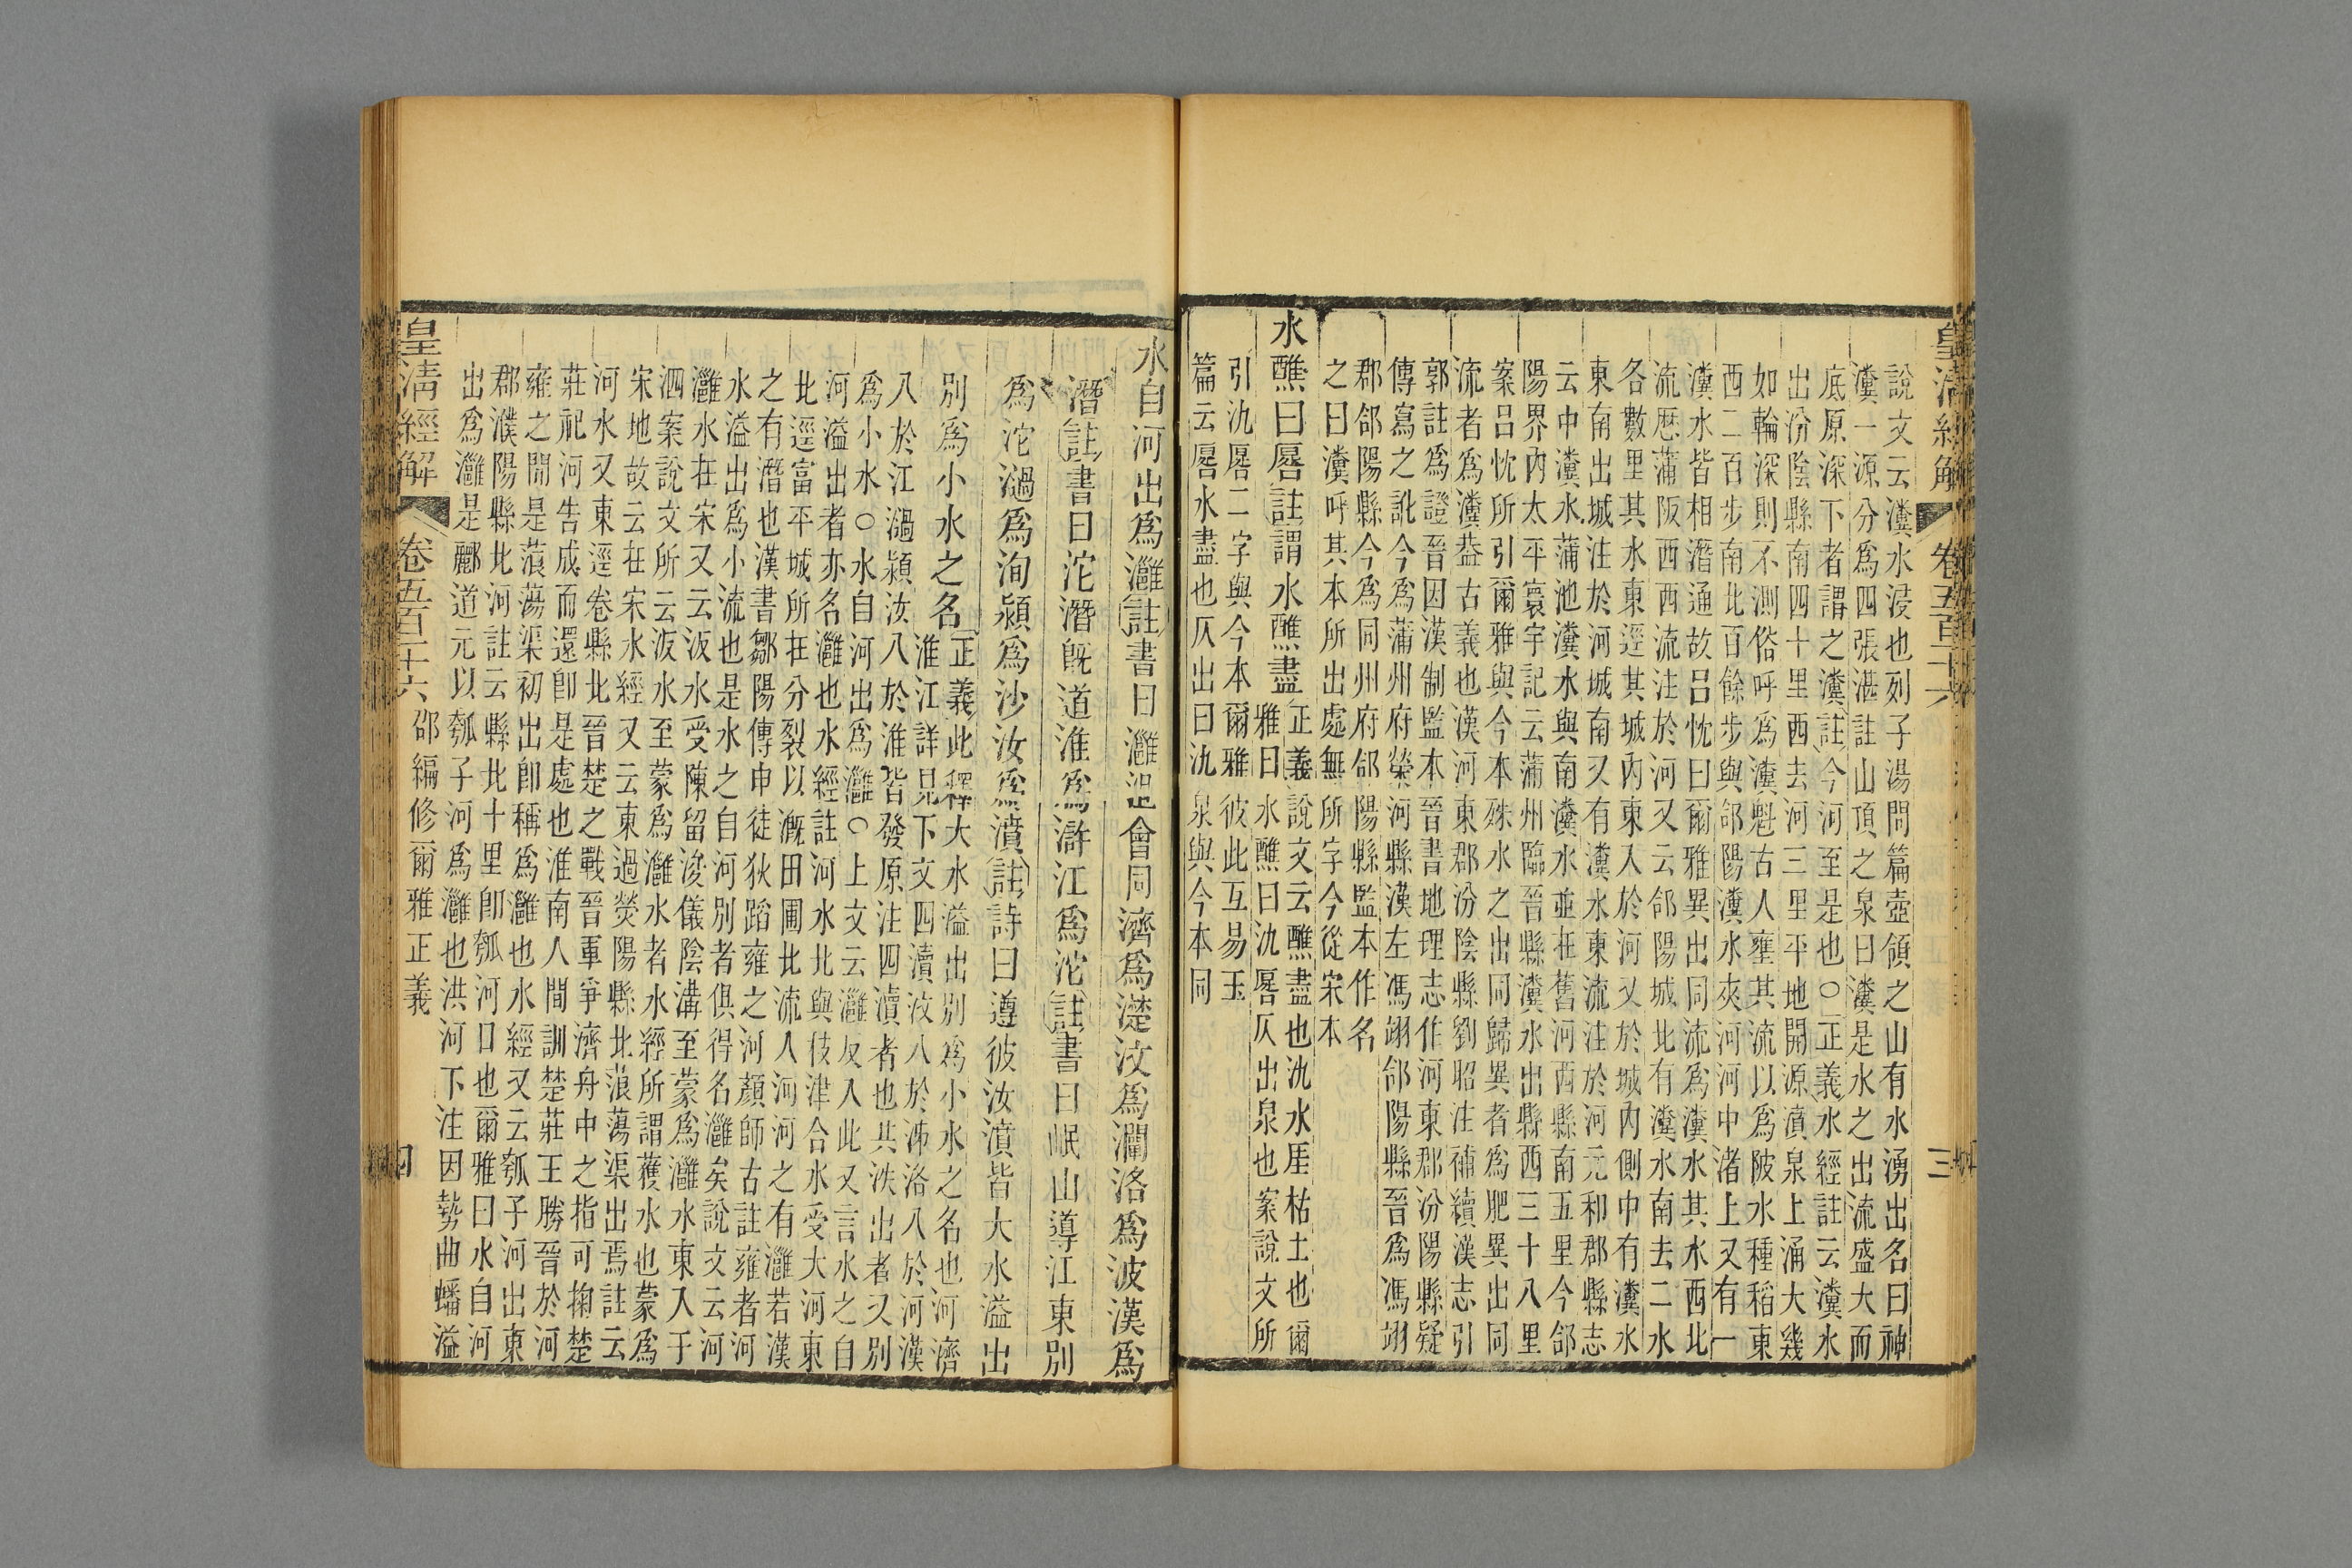 皇清經解
卷五百二十六
三
說文云瀵水浸也列子湯問篇壺領之山有水湧出名曰神
瀵一源分爲四張湛註山頂之泉曰瀵是水之出流盛大而
底原深下者謂之瀵註今河至是也○正義水經註云瀵水
出汾陰縣南四十里西去河三里平地開源濆泉上涌大幾
如輪深則不測俗呼爲瀵魁古人壅其流以爲陂水種稻東
西二百步南北百餘步與郃陽瀵水夾河河中渚上又有一
瀵水皆相潛通故呂忱曰爾雅異出同流爲瀵水其水西北
流歷蒲阪西西流注於河又云郃陽城北有瀵水南去二水
各數里其水東逕其城內東入於河又於城內側中有瀵水
東南出城注於河城南又有瀵水東流注於河元和郡縣志
云中瀵水蒲池瀵水與南瀵水並在舊河西縣南五里今郃
陽界內太平寰宇記云蒲州臨晉縣瀵水出縣西三十八里
案呂忱所引爾雅與今本殊水之出同歸異者爲肥異出同
流者爲瀵葢古義也漢河東郡汾陰縣劉昭注補續漢志引
郭註爲證晉因漢制監本晉書地理志作河東郡汾陽縣疑
傳寫之訛今爲蒲州府榮河縣漢左馮翊郃陽縣晉爲馮翊
郡郃陽縣今爲同州府郃陽縣監本作名
之曰瀵呼其本所出處無所字今從宋本
水醮曰厬註謂水醮盡正義說文云醮盡也氿水厓枯土也爾
雅曰水醮曰氿厬仄出泉也案說文所
引氿厬二字與今本爾雅彼此互易玉
篇云厬水盡也仄出曰氿泉與今本同
水自河出爲灉註書曰灉沮會同濟爲濋汶爲瀾洛爲波漢爲
潛註書曰沱潛旣道淮爲滸江爲沱註書曰岷山導江東別
爲沱濄爲洵潁爲沙汝爲濆註詩曰遵彼汝濆皆大水溢出
別爲小水之名正義此釋大水溢出別爲小水之名也河濟
淮江詳見下文四瀆汶八於泲洛八於河漢
八於江濄潁汝八於淮皆發原注四瀆者也其泆出者又別
爲小水○水自河出爲灉○上文云灉反入此又言水之自
河溢出者亦名灉也水經註河水北與伎津合水受大河東
北逕富平城所在分裂以漑田圃北流人河河之有灉若漢
之有潛也漢書鄒陽傳申徒狄蹈雍之河顏師古註雍者河
水溢出爲小流也是水之自河別者俱得名灉矣說文云河
灉水在宋又云汳水受陳留浚儀陰溝至蒙爲灉水東入于
泗案說文所云汳水至蒙爲灉水者水經所謂蒦水也蒙爲
宋地故云在宋水經又云東過熒陽縣北蒗蕩渠出焉註云
河水又東逕卷縣北晉楚之戰晉軍爭濟舟中之指可掬楚
莊祀河告成而還卽是處也淮南人間訓楚莊王勝晉於河
雍之閒是蒗蕩渠初出卽稱爲灉也水經又云瓠子河出東
郡濮陽縣北河註云縣北十里卽瓠河口也爾雅曰水自河
出爲灉是酈道元以瓠子河爲灉也洪河下注因勢曲蟠溢
皇清經解
卷五百二十六
邵編修爾雅正義
四